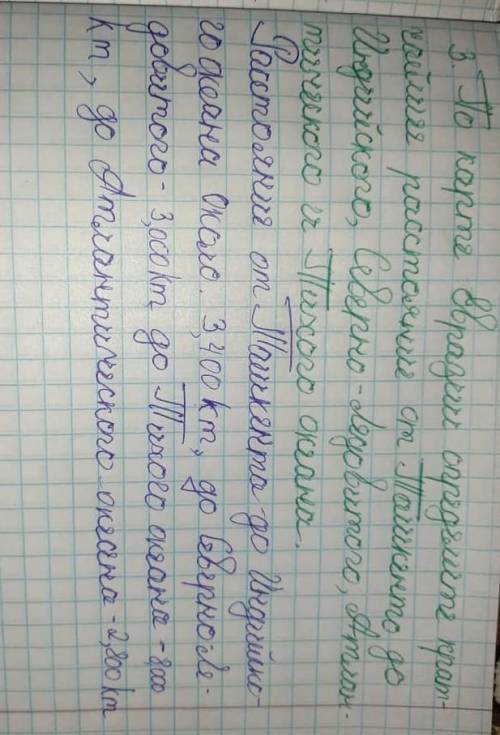 3. По карте Евразии определите крат-
чайшия расстояние от Ташкента до
Индийского, Северно-Ледовитого, Атлан-
тического и Тихого океана.
Расстояния от Ташкента до Индийско-
го океана около. 3,400 km, до Северно ле-
довитого - 3,000 km до Тихого океана - 8000
km, до Атлантического океана - 2,800 km